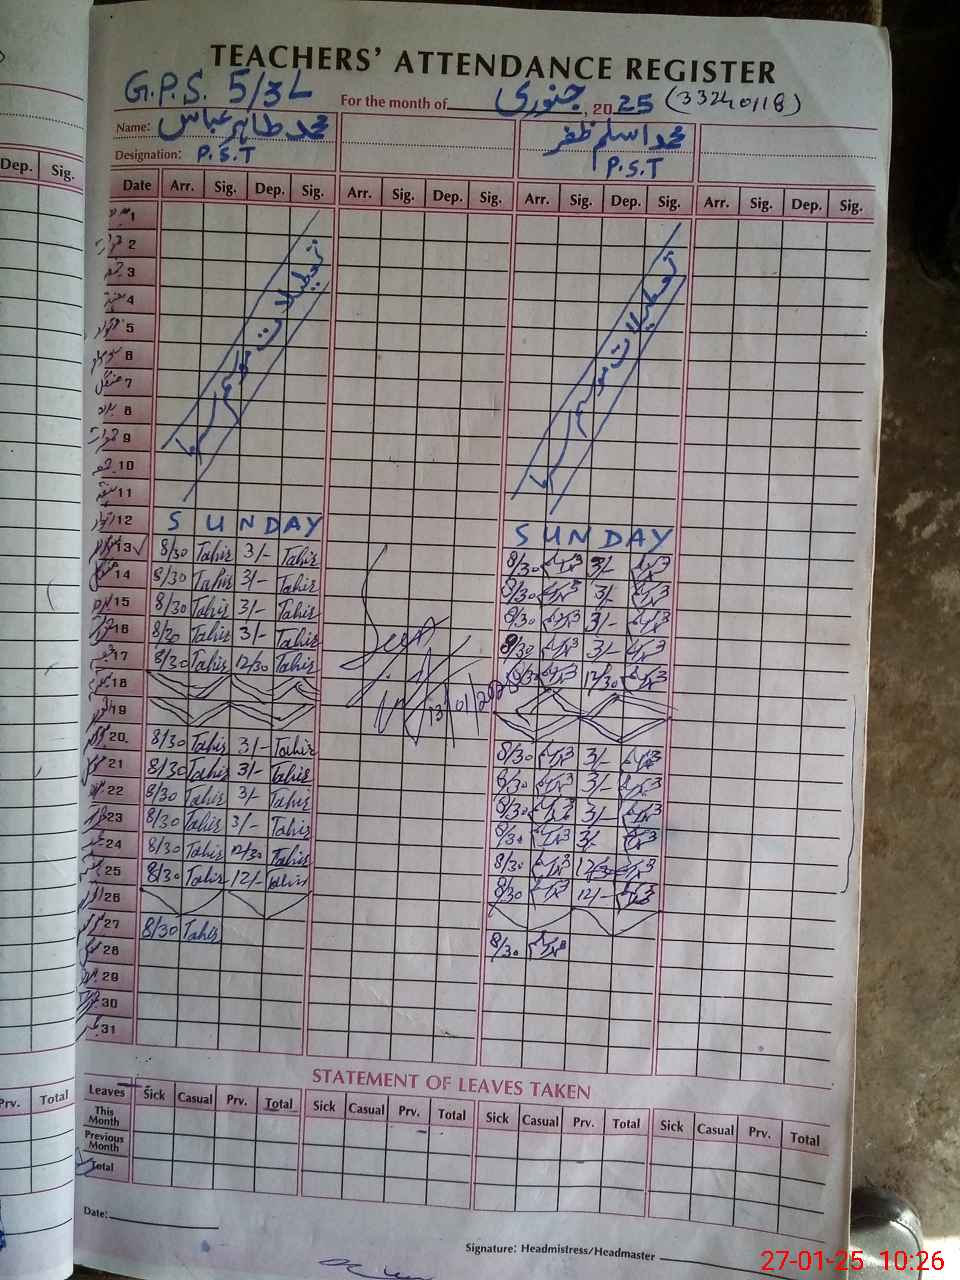 TEACHERS' ATTENDANCE REGISTER
G.P.S. 5/3L For the month of جنوری, 2025 (33240118)
Name: محمد طاہر عباس محمد اسلم ظفر
Designation: P.S.T P.S.T
Dep. Sig.
Date Arr. Sig. Dep. Sig. Arr. Sig. Dep. Sig. Arr. Sig. Dep. Sig. Arr. Sig. Dep. Sig.
1
2
3
4
5
6
7
8
9
10
11
تعطیلات موسم سرما تعطیلات موسم سرما
12 SUNDAY SUNDAY
13 8/30 Tahir 3/- Tahir 8/30 3/-
14 8/30 Tahir 3/- Tahir 8/30 3/-
15 8/30 Tahir 3/- Tahir 8/30 3/-
16 8/30 Tahir 3/- Tahir 8/30 3/-
17 8/30 Tahir 12/30 Tahir 8/30 12/30
18
13/01/2025
19
20 8/30 Tahir 3/- Tahir 8/30 3/-
21 8/30 Tahir 3/- Tahir 8/30 3/-
22 8/30 Tahir 3/- Tahir 8/30 3/-
23 8/30 Tahir 3/- Tahir 8/30 3/-
24 8/30 Tahir 12/30 Tahir 8/30 12/30
25 8/30 Tahir 12/- Tahir 8/30 12/-
26
27 8/30 Tahir 8/30
28
29
30
31
STATEMENT OF LEAVES TAKEN
Prv. Total
Leaves Sick Casual Prv. Total Sick Casual Prv. Total Sick Casual Prv. Total Sick Casual Prv. Total
This Month
Previous Month
Total
Date:
Signature: Headmistress/Headmaster
27-01-25 10:26